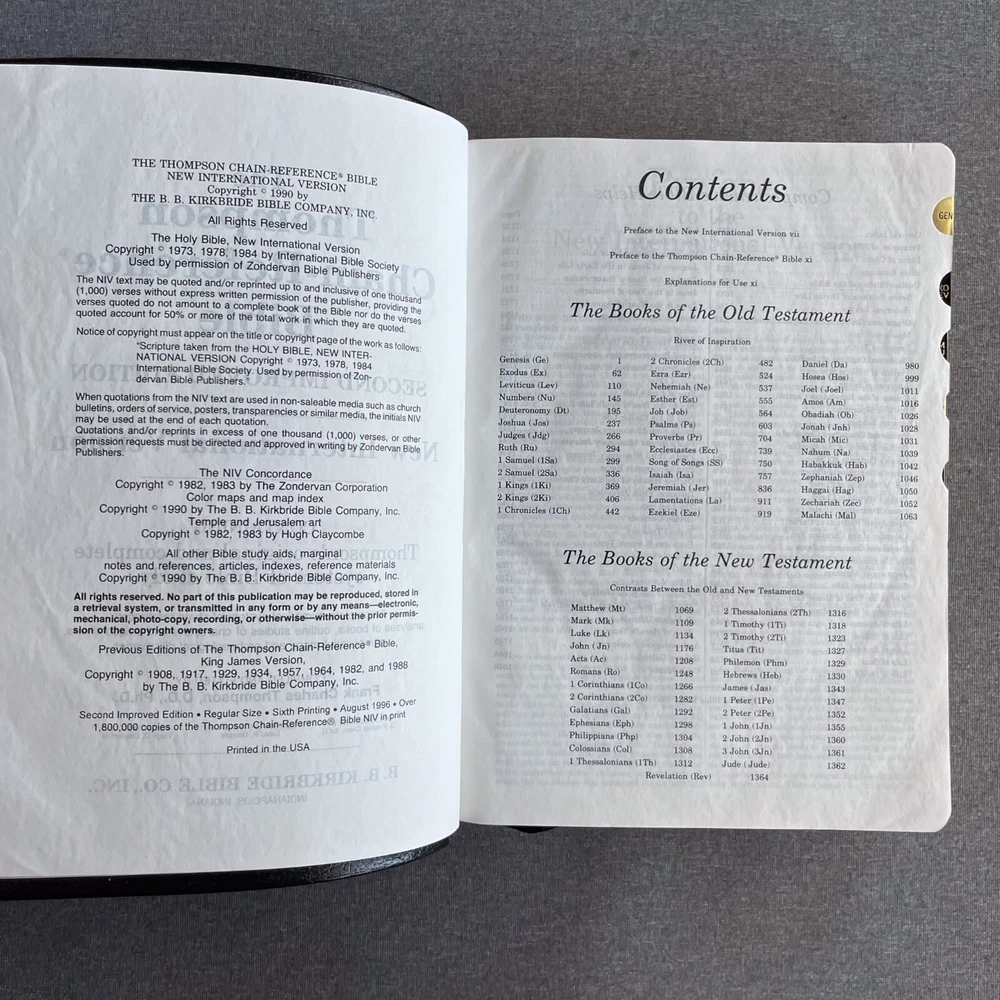 THE THOMPSON CHAIN-REFERENCE® BIBLE
NEW INTERNATIONAL VERSION
Copyright © 1990 by
THE B. B. KIRKBRIDE BIBLE COMPANY, INC.
All Rights Reserved
The Holy Bible, New International Version
Copyright © 1973, 1978, 1984 by International Bible Society
Used by permission of Zondervan Bible Publishers
The NIV text may be quoted and/or reprinted up to and inclusive of one thousand
(1,000) verses without express written permission of the publisher, providing the
verses quoted do not amount to a complete book of the Bible nor do the verses
quoted account for 50% or more of the total work in which they are quoted.
Notice of copyright must appear on the title or copyright page of the work as follows:
"Scripture taken from the HOLY BIBLE, NEW INTER-
NATIONAL VERSION Copyright © 1973, 1978, 1984
International Bible Society. Used by permission of Zon-
dervan Bible Publishers."
When quotations from the NIV text are used in non-saleable media such as church
bulletins, orders of service, posters, transparencies or similar media, the initials NIV
may be used at the end of each quotation.
Quotations and/or reprints in excess of one thousand (1,000) verses, or other
permission requests must be directed and approved in writing by Zondervan Bible
Publishers.
The NIV Concordance
Copyright © 1982, 1983 by The Zondervan Corporation
Color maps and map index
Copyright © 1990 by The B. B. Kirkbride Bible Company, Inc.
Temple and Jerusalem art
Copyright © 1982, 1983 by Hugh Claycombe
All other Bible study aids, marginal
notes and references, articles, indexes, reference materials
Copyright © 1990 by The B. B. Kirkbride Bible Company, Inc.
All rights reserved. No part of this publication may be reproduced, stored in
a retrieval system, or transmitted in any form or by any means—electronic,
mechanical, photo-copy, recording, or otherwise—without the prior permis-
sion of the copyright owners.
Previous Editions of The Thompson Chain-Reference® Bible,
King James Version,
Copyright © 1908, 1917, 1929, 1934, 1957, 1964, 1982, and 1988
by The B. B. Kirkbride Bible Company, Inc.
Second Improved Edition • Regular Size • Sixth Printing • August 1996 • Over
1,800,000 copies of the Thompson Chain-Reference® Bible NIV in print
Printed in the USA
Contents
Preface to the New International Version vii
Preface to the Thompson Chain-Reference® Bible xi
Explanations for Use xi
The Books of the Old Testament
River of Inspiration
Genesis (Ge) 1
Exodus (Ex) 62
Leviticus (Lev) 110
Numbers (Nu) 145
Deuteronomy (Dt) 195
Joshua (Jos) 237
Judges (Jdg) 266
Ruth (Ru) 294
1 Samuel (1Sa) 299
2 Samuel (2Sa) 336
1 Kings (1Ki) 369
2 Kings (2Ki) 406
1 Chronicles (1Ch) 442
2 Chronicles (2Ch) 482
Ezra (Ezr) 524
Nehemiah (Ne) 537
Esther (Est) 555
Job (Job) 564
Psalms (Ps) 603
Proverbs (Pr) 704
Ecclesiastes (Ecc) 739
Song of Songs (SS) 750
Isaiah (Isa) 757
Jeremiah (Jer) 836
Lamentations (La) 911
Ezekiel (Eze) 919
Daniel (Da) 980
Hosea (Hos) 999
Joel (Joel) 1011
Amos (Am) 1016
Obadiah (Ob) 1026
Jonah (Jnh) 1028
Micah (Mic) 1031
Nahum (Na) 1039
Habakkuk (Hab) 1042
Zephaniah (Zep) 1046
Haggai (Hag) 1050
Zechariah (Zec) 1052
Malachi (Mal) 1063
The Books of the New Testament
Contrasts Between the Old and New Testaments
Matthew (Mt) 1069
Mark (Mk) 1109
Luke (Lk) 1134
John (Jn) 1176
Acts (Ac) 1208
Romans (Ro) 1248
1 Corinthians (1Co) 1266
2 Corinthians (2Co) 1282
Galatians (Gal) 1292
Ephesians (Eph) 1298
Philippians (Php) 1304
Colossians (Col) 1308
1 Thessalonians (1Th) 1312
2 Thessalonians (2Th) 1316
1 Timothy (1Ti) 1318
2 Timothy (2Ti) 1323
Titus (Tit) 1327
Philemon (Phm) 1329
Hebrews (Heb) 1330
James (Jas) 1343
1 Peter (1Pe) 1347
2 Peter (2Pe) 1352
1 John (1Jn) 1355
2 John (2Jn) 1360
3 John (3Jn) 1361
Jude (Jude) 1362
Revelation (Rev) 1364
GEN